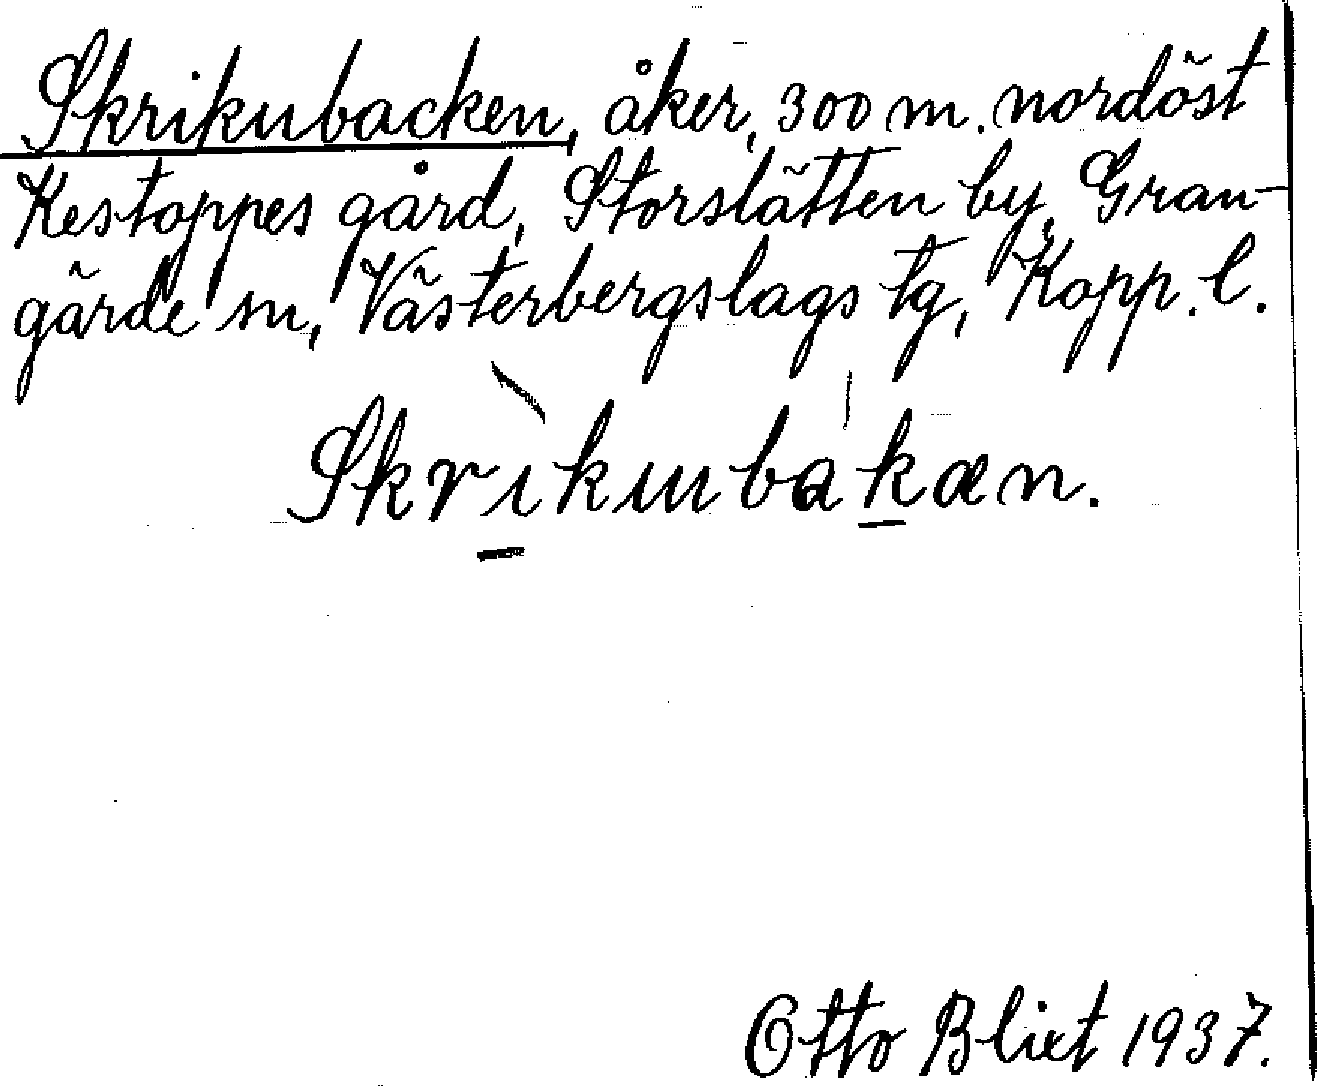 Skrikubacken, åker, 300 m. nordöst
Kestoppes gård, Storslätten by, Gran-
gärde sn, Västerbergslags tg, Kopp. l.
Skrikɯbakæn.
Otto Blixt 1937.